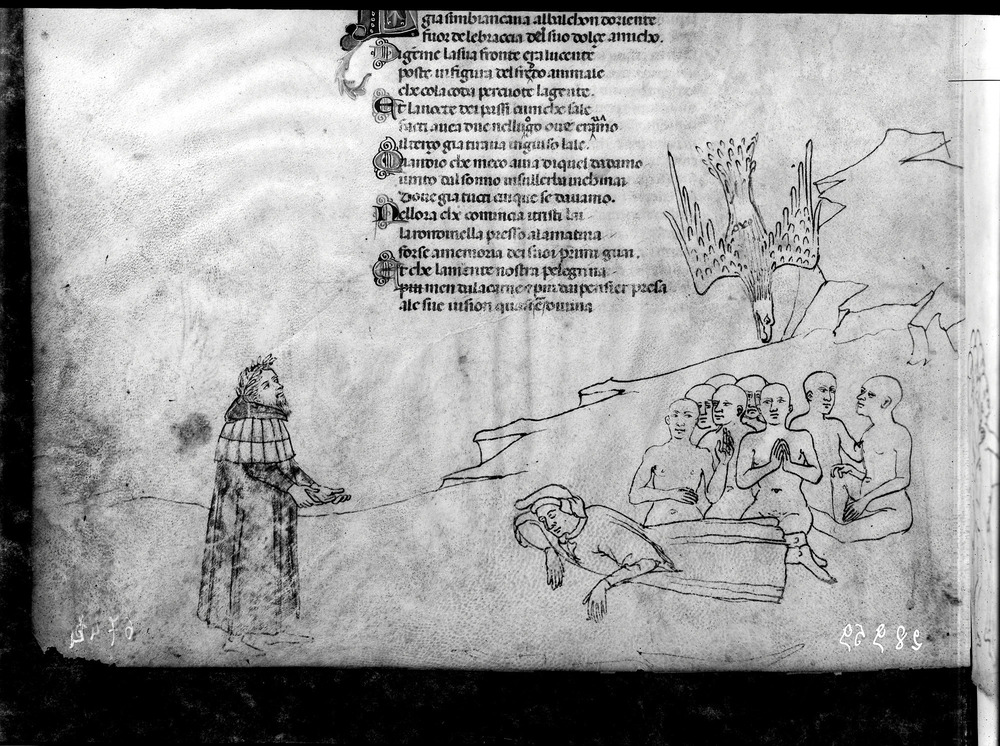 gia simbiancaua albalchon doriente.
fuor delebraccia del suo dolçe amicho.
Digeme lasua fronte era lucente
poste in figura del fredo animale
che cola coda percuote lagente.
Et lanocte dei passi cum che sale
facti auea due nelluogo oue
il terço gia ingiuso lale.
Quandio che meco auia di quel dadamo
uinto dal sonno insullerba inchinai
Doue gia tucti cinque se dauamo.
Nellora che comincia itristi lai
la rondinella presso alamatina
forse amemoria dei suoi primi guai.
Et che lamente nostra pelegrina
piu men dalacarne & piu dai pensier presa
ale sue uision quasi diuina